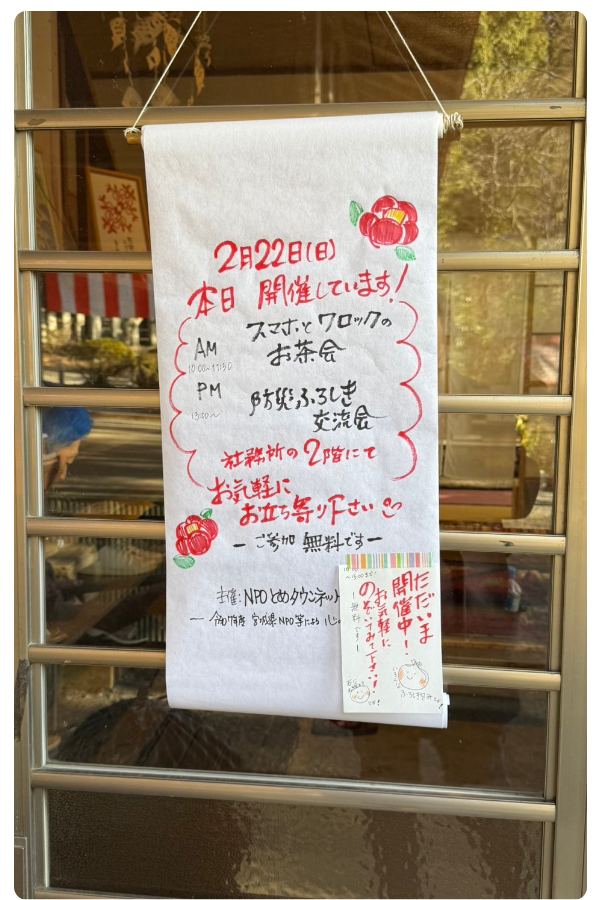 2月22日(日)
本日 開催しています!
スマホとクロックの
お茶会
AM
10:00~11:30
PM
13:00~
防災ふろしき
交流会
社務所の2階にて
お気軽に
お立ち寄り下さい
ーご参加 無料ですー
主催:NPOとめタウンネット
宮城県NPO等による 心の
~15:00まで!
ただいま
開催中!
お気軽に
のぞいてみて下さい!
ー無料ですー